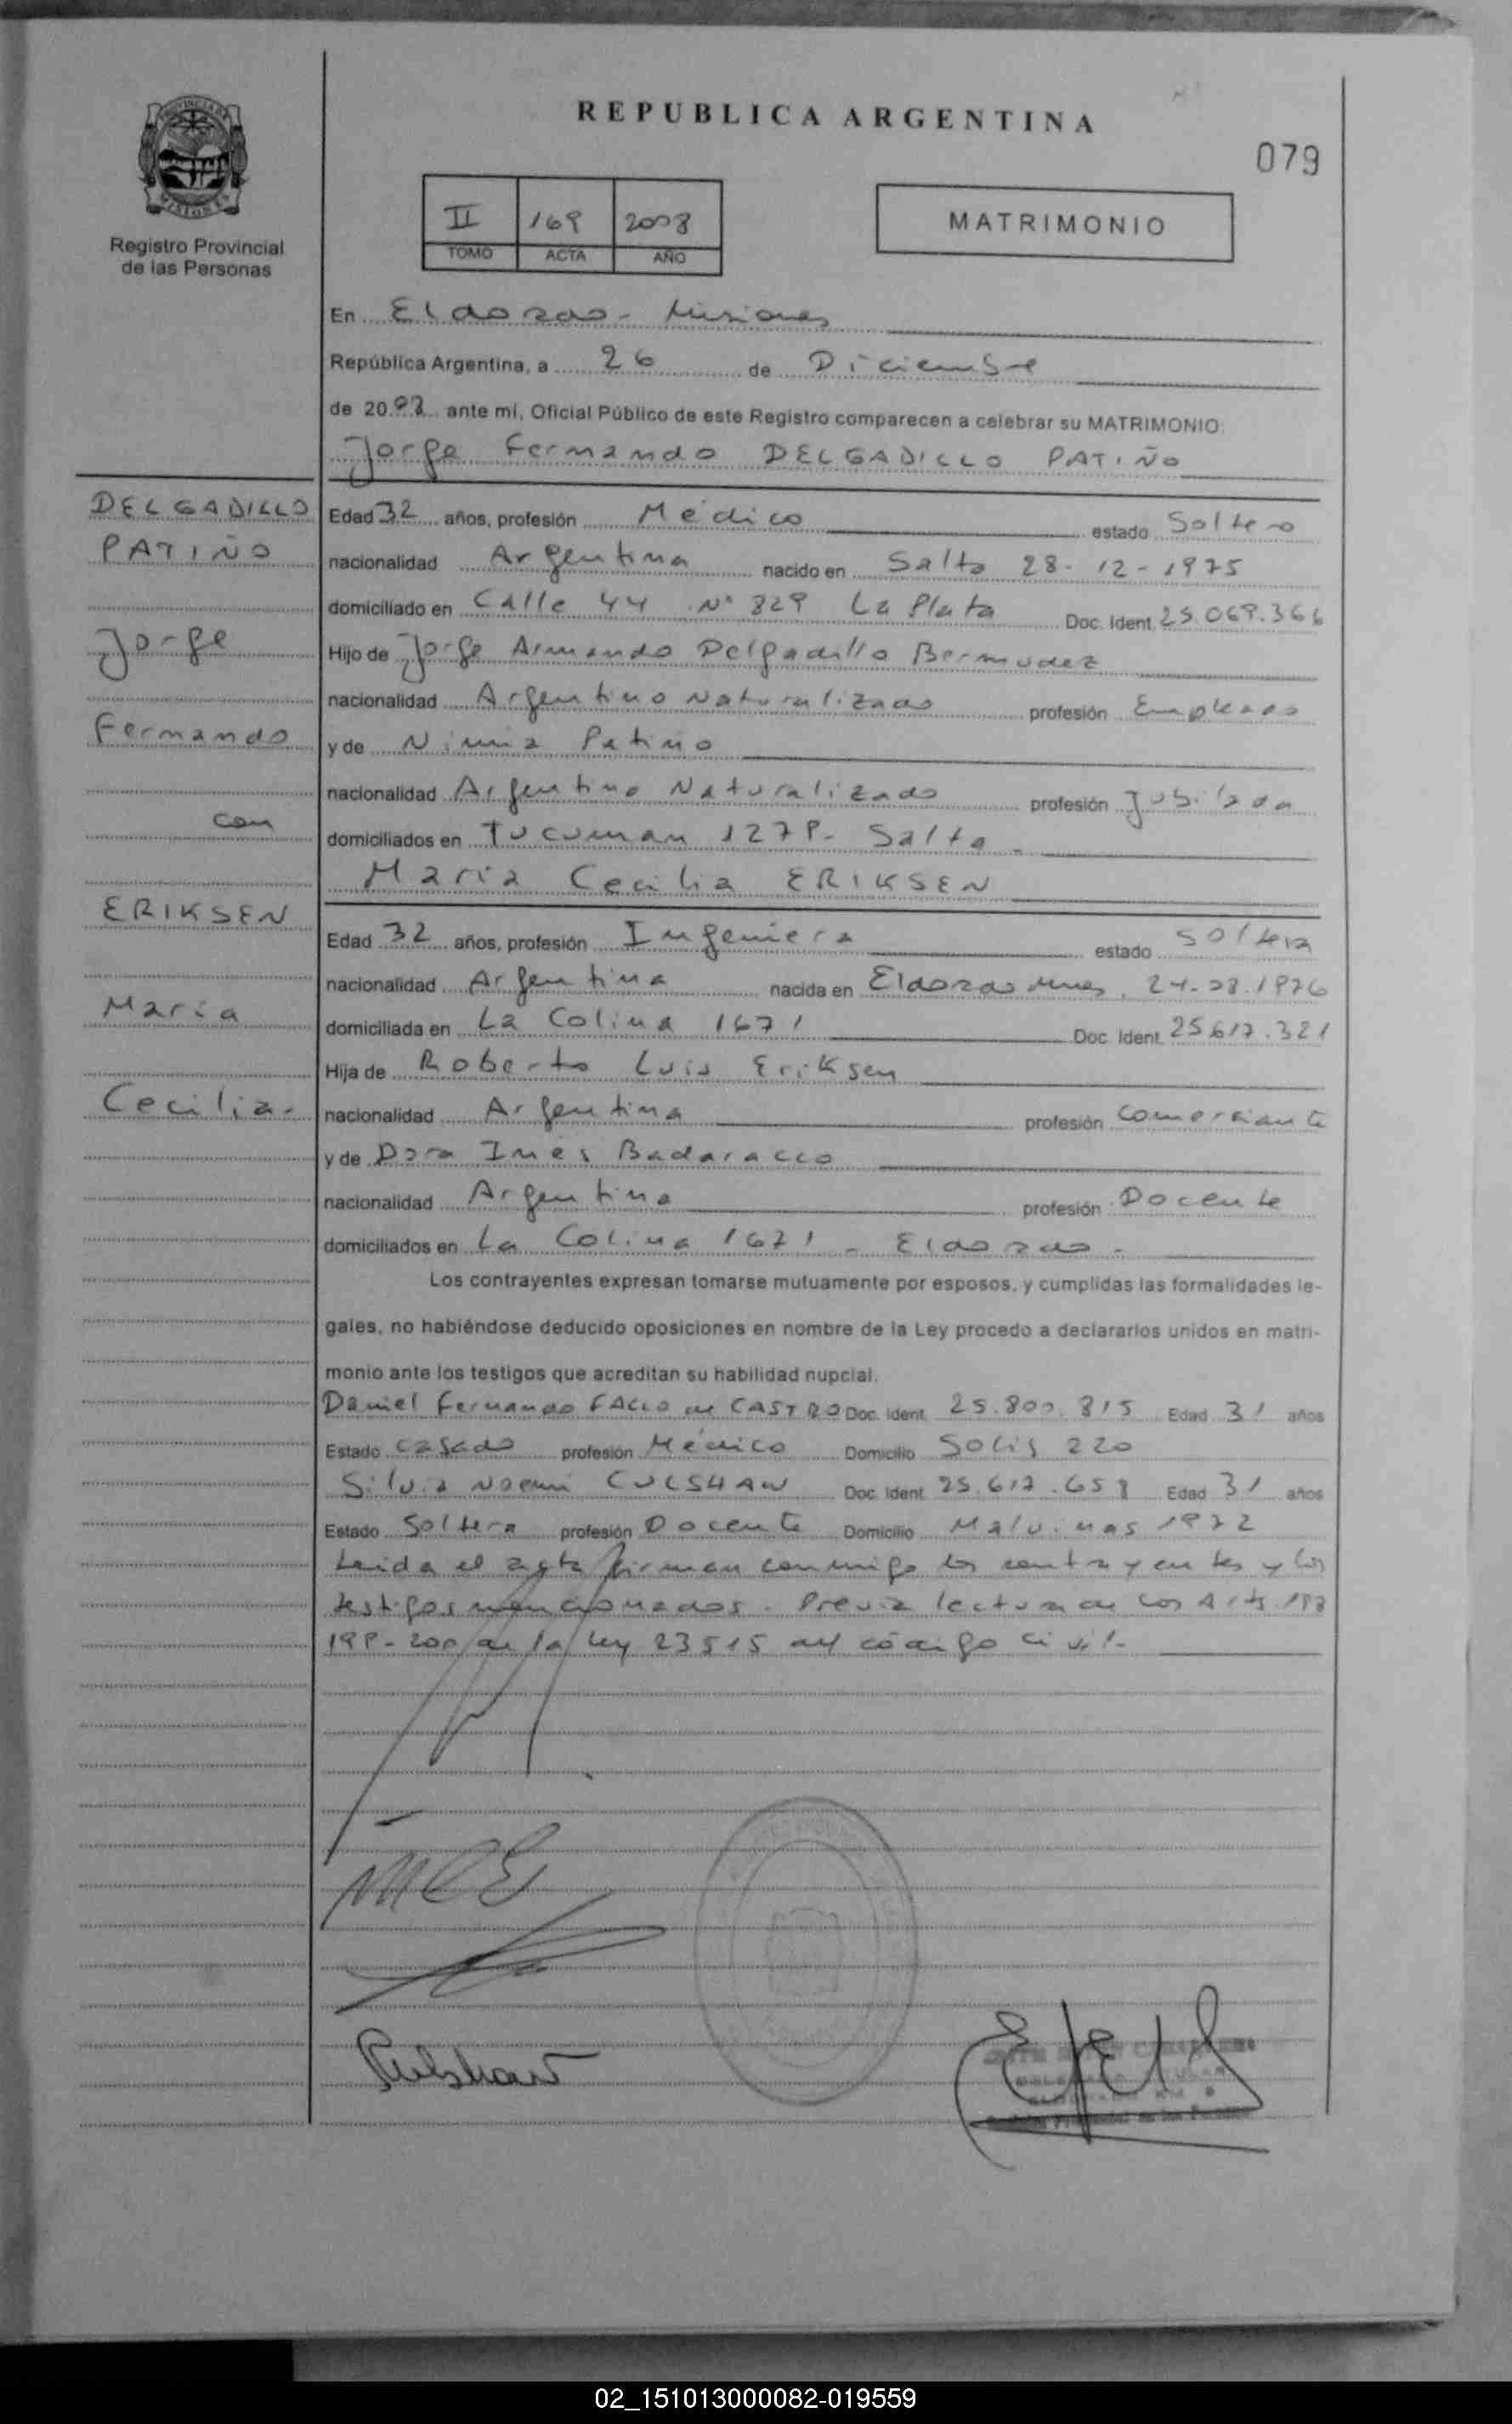 REPUBLICA ARGENTINA
079
Registro Provincial
de las Personas
II 169 2008
TOMO ACTA AÑO
MATRIMONIO
En Eldorado - Misiones
República Argentina, a 26 de Diciembre
de 2008 ante mí, Oficial Público de este Registro comparecen a celebrar su MATRIMONIO:
Jorge Fernando DELGADILLO PATIÑO
DELGADILLO
PATIÑO
Jorge
Fernando
con
ERIKSEN
María
Cecilia-
Edad 32 años, profesión Médico estado Soltero
nacionalidad Argentina nacido en Salta 28-12-1975
domiciliado en Calle 44 Nº 829 La Plata Doc. Ident. 25.069.366
Hijo de Jorge Armando Delgadillo Bermudez
nacionalidad Argentino Naturalizado profesión Empleado
y de Nimia Patiño
nacionalidad Argentino Naturalizado profesión Jubilada
domiciliados en Tucuman 1279- Salta-
María Cecilia ERIKSEN
Edad 32 años, profesión Ingeniera estado soltera
nacionalidad Argentina nacida en Eldorado Mnes, 24.08.1976
domiciliada en La Colina 1671 Doc. Ident. 25.617.321
Hija de Roberto Luis Eriksen
nacionalidad Argentina profesión Comerciante
y de Dora Inés Badaracco
nacionalidad Argentina profesión Docente
domiciliados en La Colina 1671 - Eldorado -
Los contrayentes expresan tomarse mutuamente por esposos, y cumplidas las formalidades le-
gales, no habiéndose deducido oposiciones en nombre de la Ley procedo a declararlos unidos en matri-
monio ante los testigos que acreditan su habilidad nupcial.
Daniel Fernando FALLO de CASTRO Doc. Ident. 25.800.815 Edad 31 años
Estado Casado profesión Médico Domicilio Solis 220
Silvia Noemi CULSHAW Doc. Ident. 25.617.658 Edad 31 años
Estado Soltera profesión Docente Domicilio Malvinas 1972
Leida el acta firman conmigo los contrayentes y los
testigos mencionados. Previa lectura de los Arts 198
199-200 de la Ley 23515 del código civil-
MCE
Culshaw
02_151013000082-019559